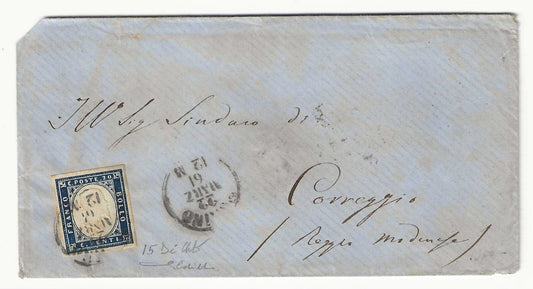 Ill Sig Sindaco di
Correggio
(Reggio Modenese)
C. POSTE 20
FRANCO
BOLLO
C. VENTI
22
MARZ
61
12 M
61
15 Di